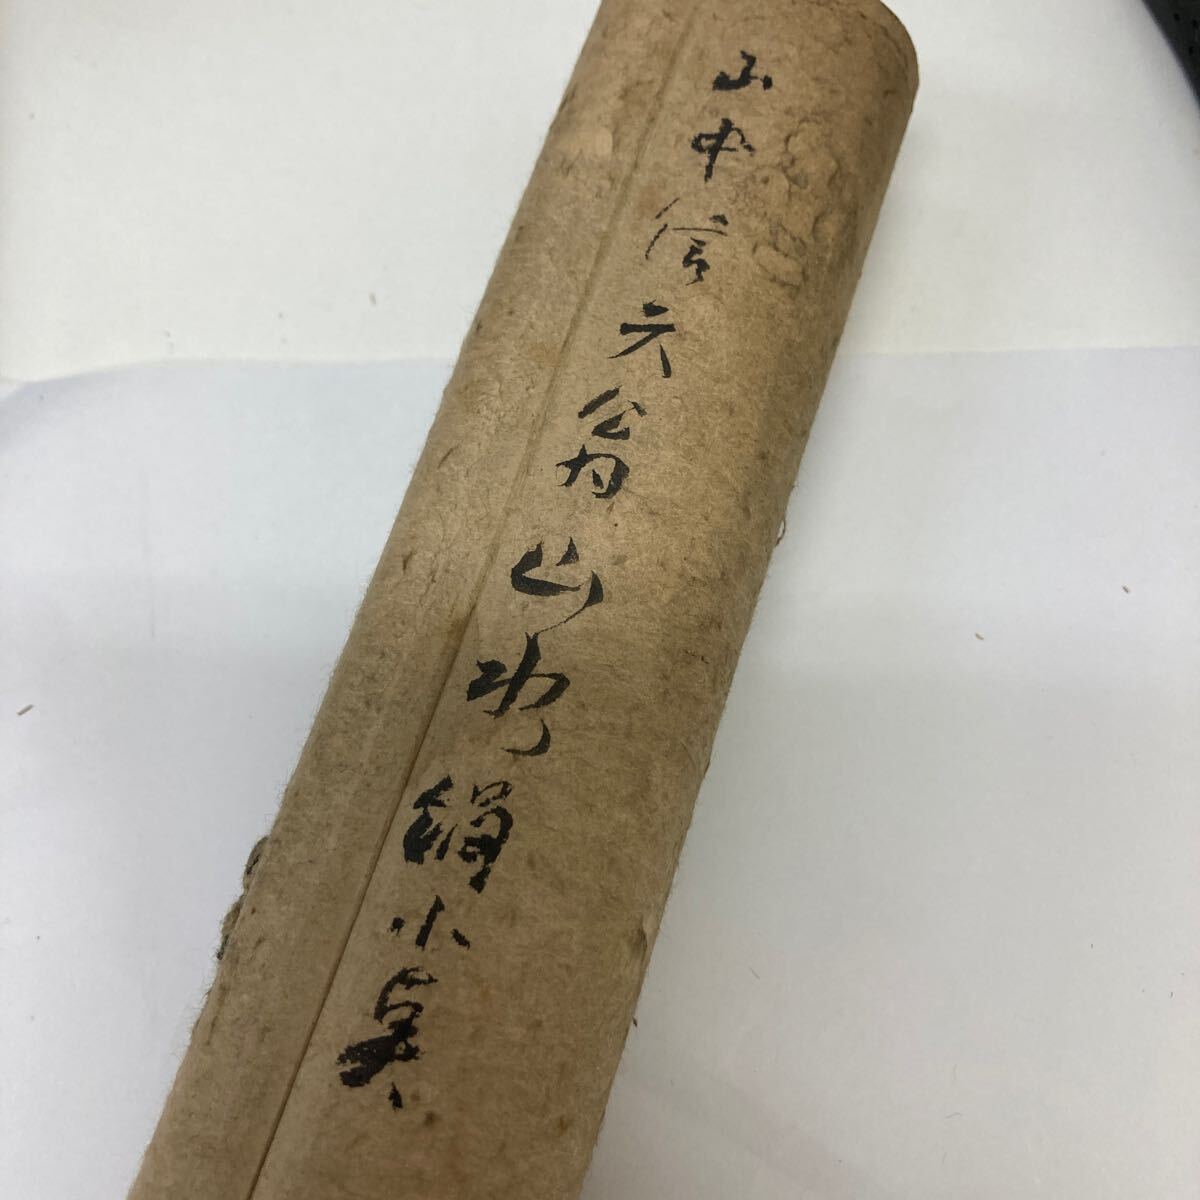 山中信天翁山水絹小点